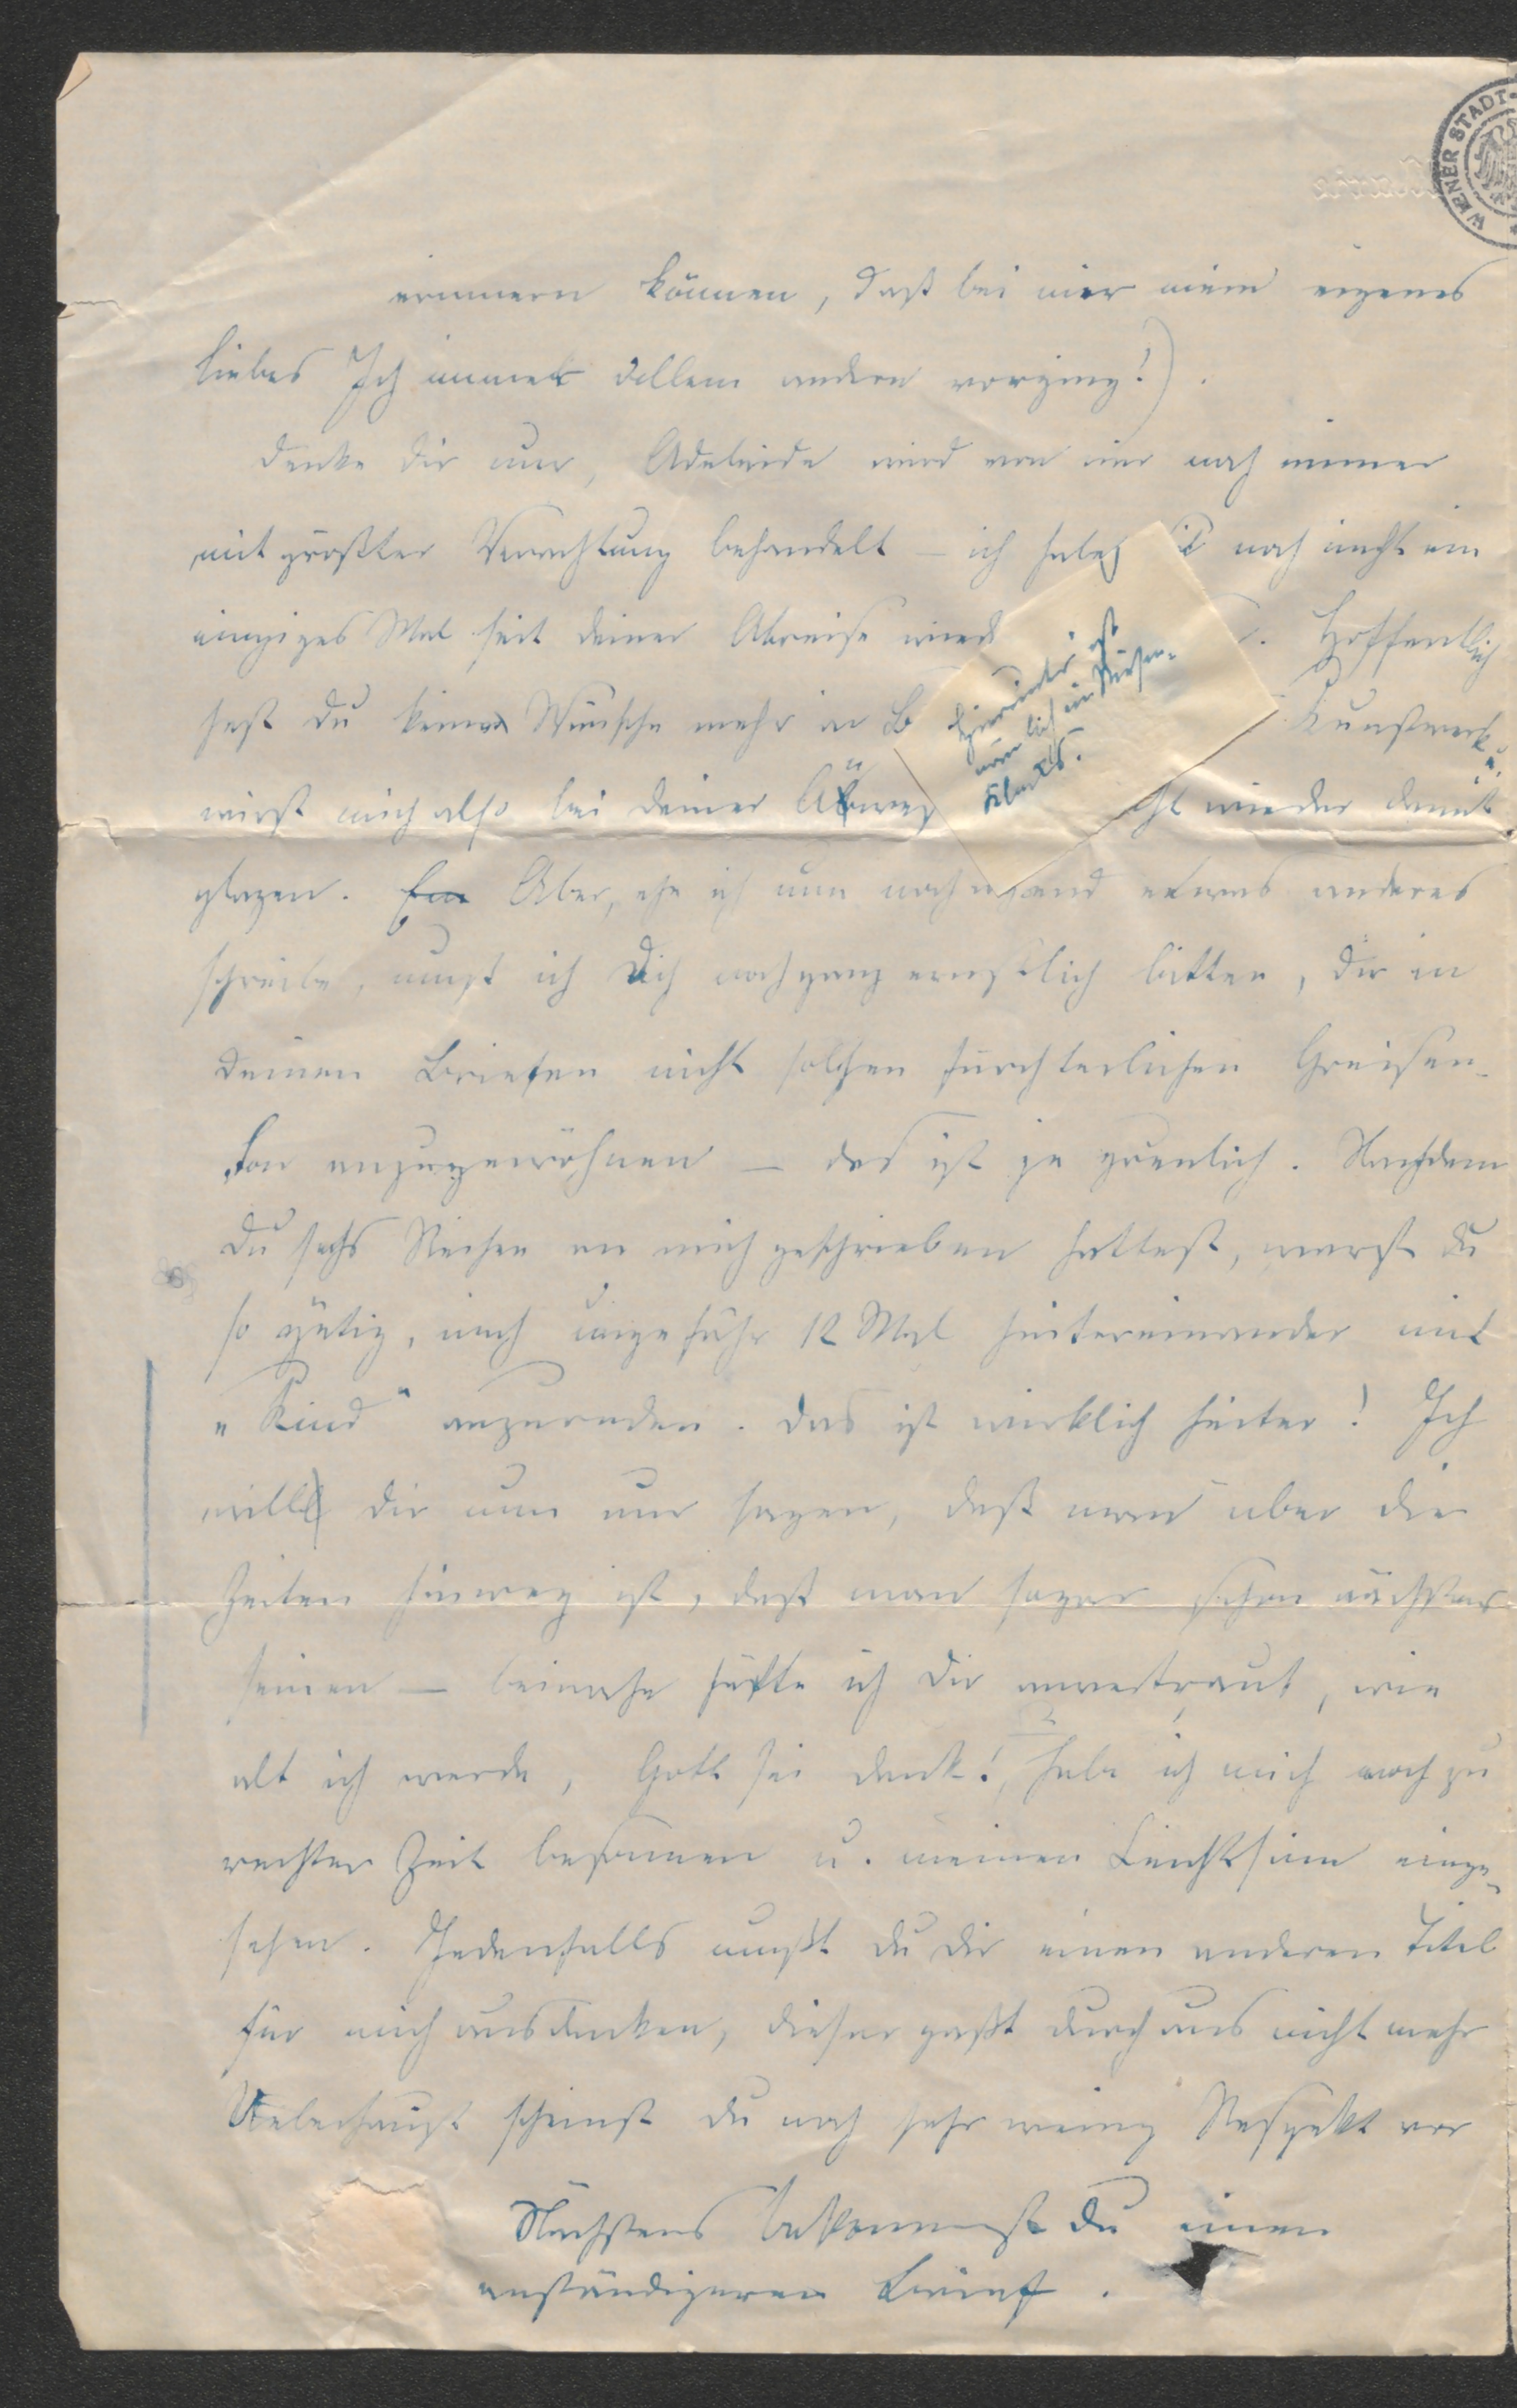 WIENER STADT-
erinnern können, daß bei mir mein eigenes
liebes Ich immer allem andern vorging!).
Denke Dir nur, Adelaide wird von mir noch immer
mit größter Verachtung behandelt – ich habe sie noch nicht ein
einziges Mal seit deiner Abreise Hoffentlich
hast Du keine Wünsche mehr in Kunstwerk u.
wirst mich also bei deiner nicht wieder damit
plagen. Aber, ehe ich nun noch irgend etwas anderes
schreibe, muß ich Dich noch ganz ernstlich bitten, Dir in
Deinen Briefen nicht solchen fürchterlichen Greisen-
ton anzugewöhnen – das ist ja greulich. Nachdem
Du sechs Reihen an mich geschrieben hattest, warst Du
so gütig, mich ungefähr 12 Mal hintereinander mit
"Kind" anzureden. Das ist wirklich heiter! Ich
will Dir nun nur sagen, daß man über die
Zeiten hinweg ist, daß man sogar schon nächstens
seinen – beinahe hätte ich Dir anvertraut, wie
alt ich werde, Gott sei dank!, habe ich mich noch zu
rechter Zeit besonnen u. meinen Leichtsinn einge-
sehen. Jedenfalls mußt Du Dir einen anderen Titel
für mich ausdenken, dieser paßt durchaus nicht mehr
Ueberhaupt scheinst Du noch sehr wenig Respekt vor
Nächstens bekommst Du einen
anständigeren Brief.
Hierunter ist
nämlich ein Riesen-
klecks.